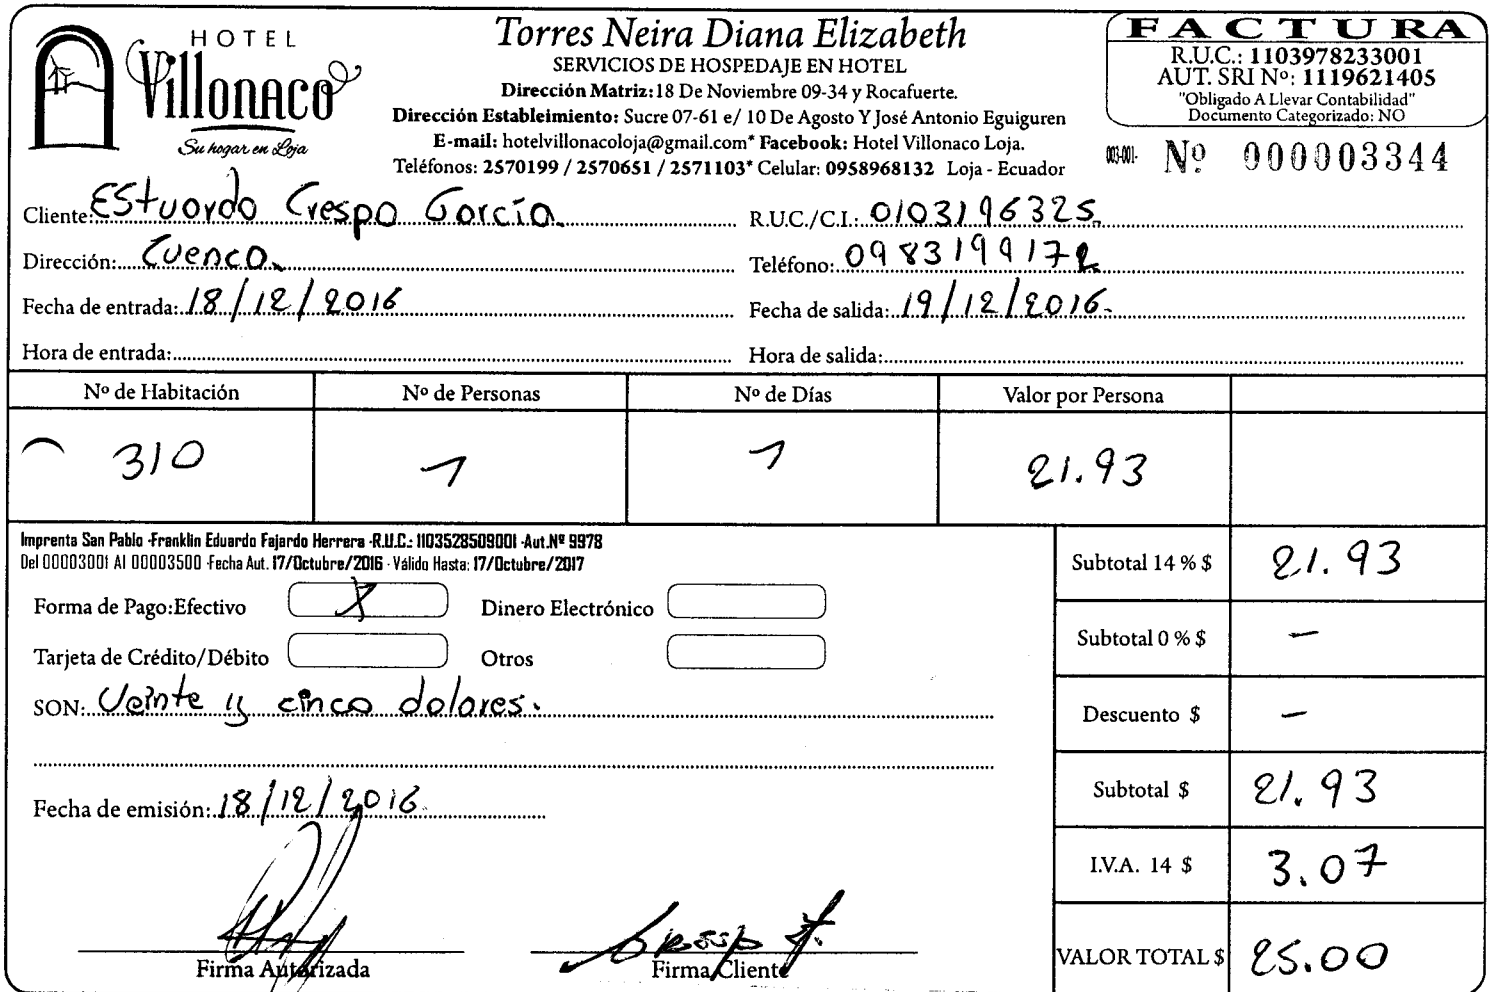 HOTEL
Villonaco
Su hogar en Loja
Torres Neira Diana Elizabeth
SERVICIOS DE HOSPEDAJE EN HOTEL
Dirección Matriz: 18 De Noviembre 09-34 y Rocafuerte.
Dirección Estableimiento: Sucre 07-61 e/ 10 De Agosto Y José Antonio Eguiguren
E-mail: hotelvillonacoloja@gmail.com* Facebook: Hotel Villonaco Loja.
Teléfonos: 2570199 / 2570651 / 2571103* Celular: 0958968132 Loja - Ecuador
FACTURA
R.U.C.: 1103978233001
AUT. SRI Nº: 1119621405
"Obligado A Llevar Contabilidad"
Documento Categorizado: NO
003-001- Nº 000003344
Cliente: Estuardo Crespo García. R.U.C./C.I.: 0103196325.
Dirección: Cuenca. Teléfono: 0983199172
Fecha de entrada: 18/12/2016 Fecha de salida: 19/12/2016.
Hora de entrada: Hora de salida:
Nº de Habitación Nº de Personas Nº de Días Valor por Persona
310 1 1 21.93
Imprenta San Pablo -Franklin Eduardo Fajardo Herrera -R.U.C.: 1103528509001 -Aut.Nº 9978
Del 00003001 Al 00003500 -Fecha Aut. 17/Octubre/2016 - Válido Hasta: 17/Octubre/2017
Subtotal 14 % $ 21.93
Forma de Pago:Efectivo X Dinero Electrónico
Subtotal 0 % $ –
Tarjeta de Crédito/Débito Otros
SON: Veinte y cinco dolares.
Descuento $ –
Subtotal $ 21.93
Fecha de emisión: 18/12/2016.
I.V.A. 14 $ 3.07
VALOR TOTAL $ 25.00
Firma Autorizada Firma Cliente